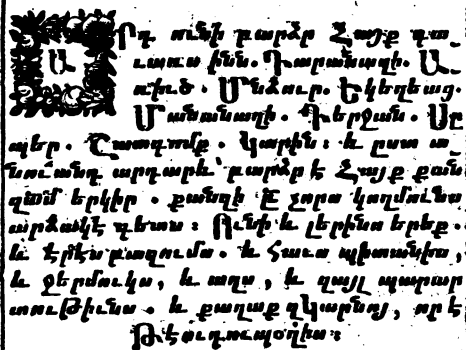 ԱՐդ ունի բարձր Հայք գա-
ւառս ինն. Դարանաղի. Ա-
ռիւծ. Մնձուր. Եկեղեաց.
Մանանաղի. Դերջան. Սը
պեր. Շատգոմք. Կարին: և ըստ ա-
նուանդ արդարև՝ բարձր է Հայք քան
զամ երկիր. քանզի Ի չորս կողմունս
արձակէ գետս: Ունի և լերինս երեք.
և էրէս բազումս. և Հաւս պիտանիս,
և ջերմուկս, և աղս, և զայլ պարար
տութիւնս. և քաղաք զԿարնոյ, որ է
Թէոդուպօլիս: